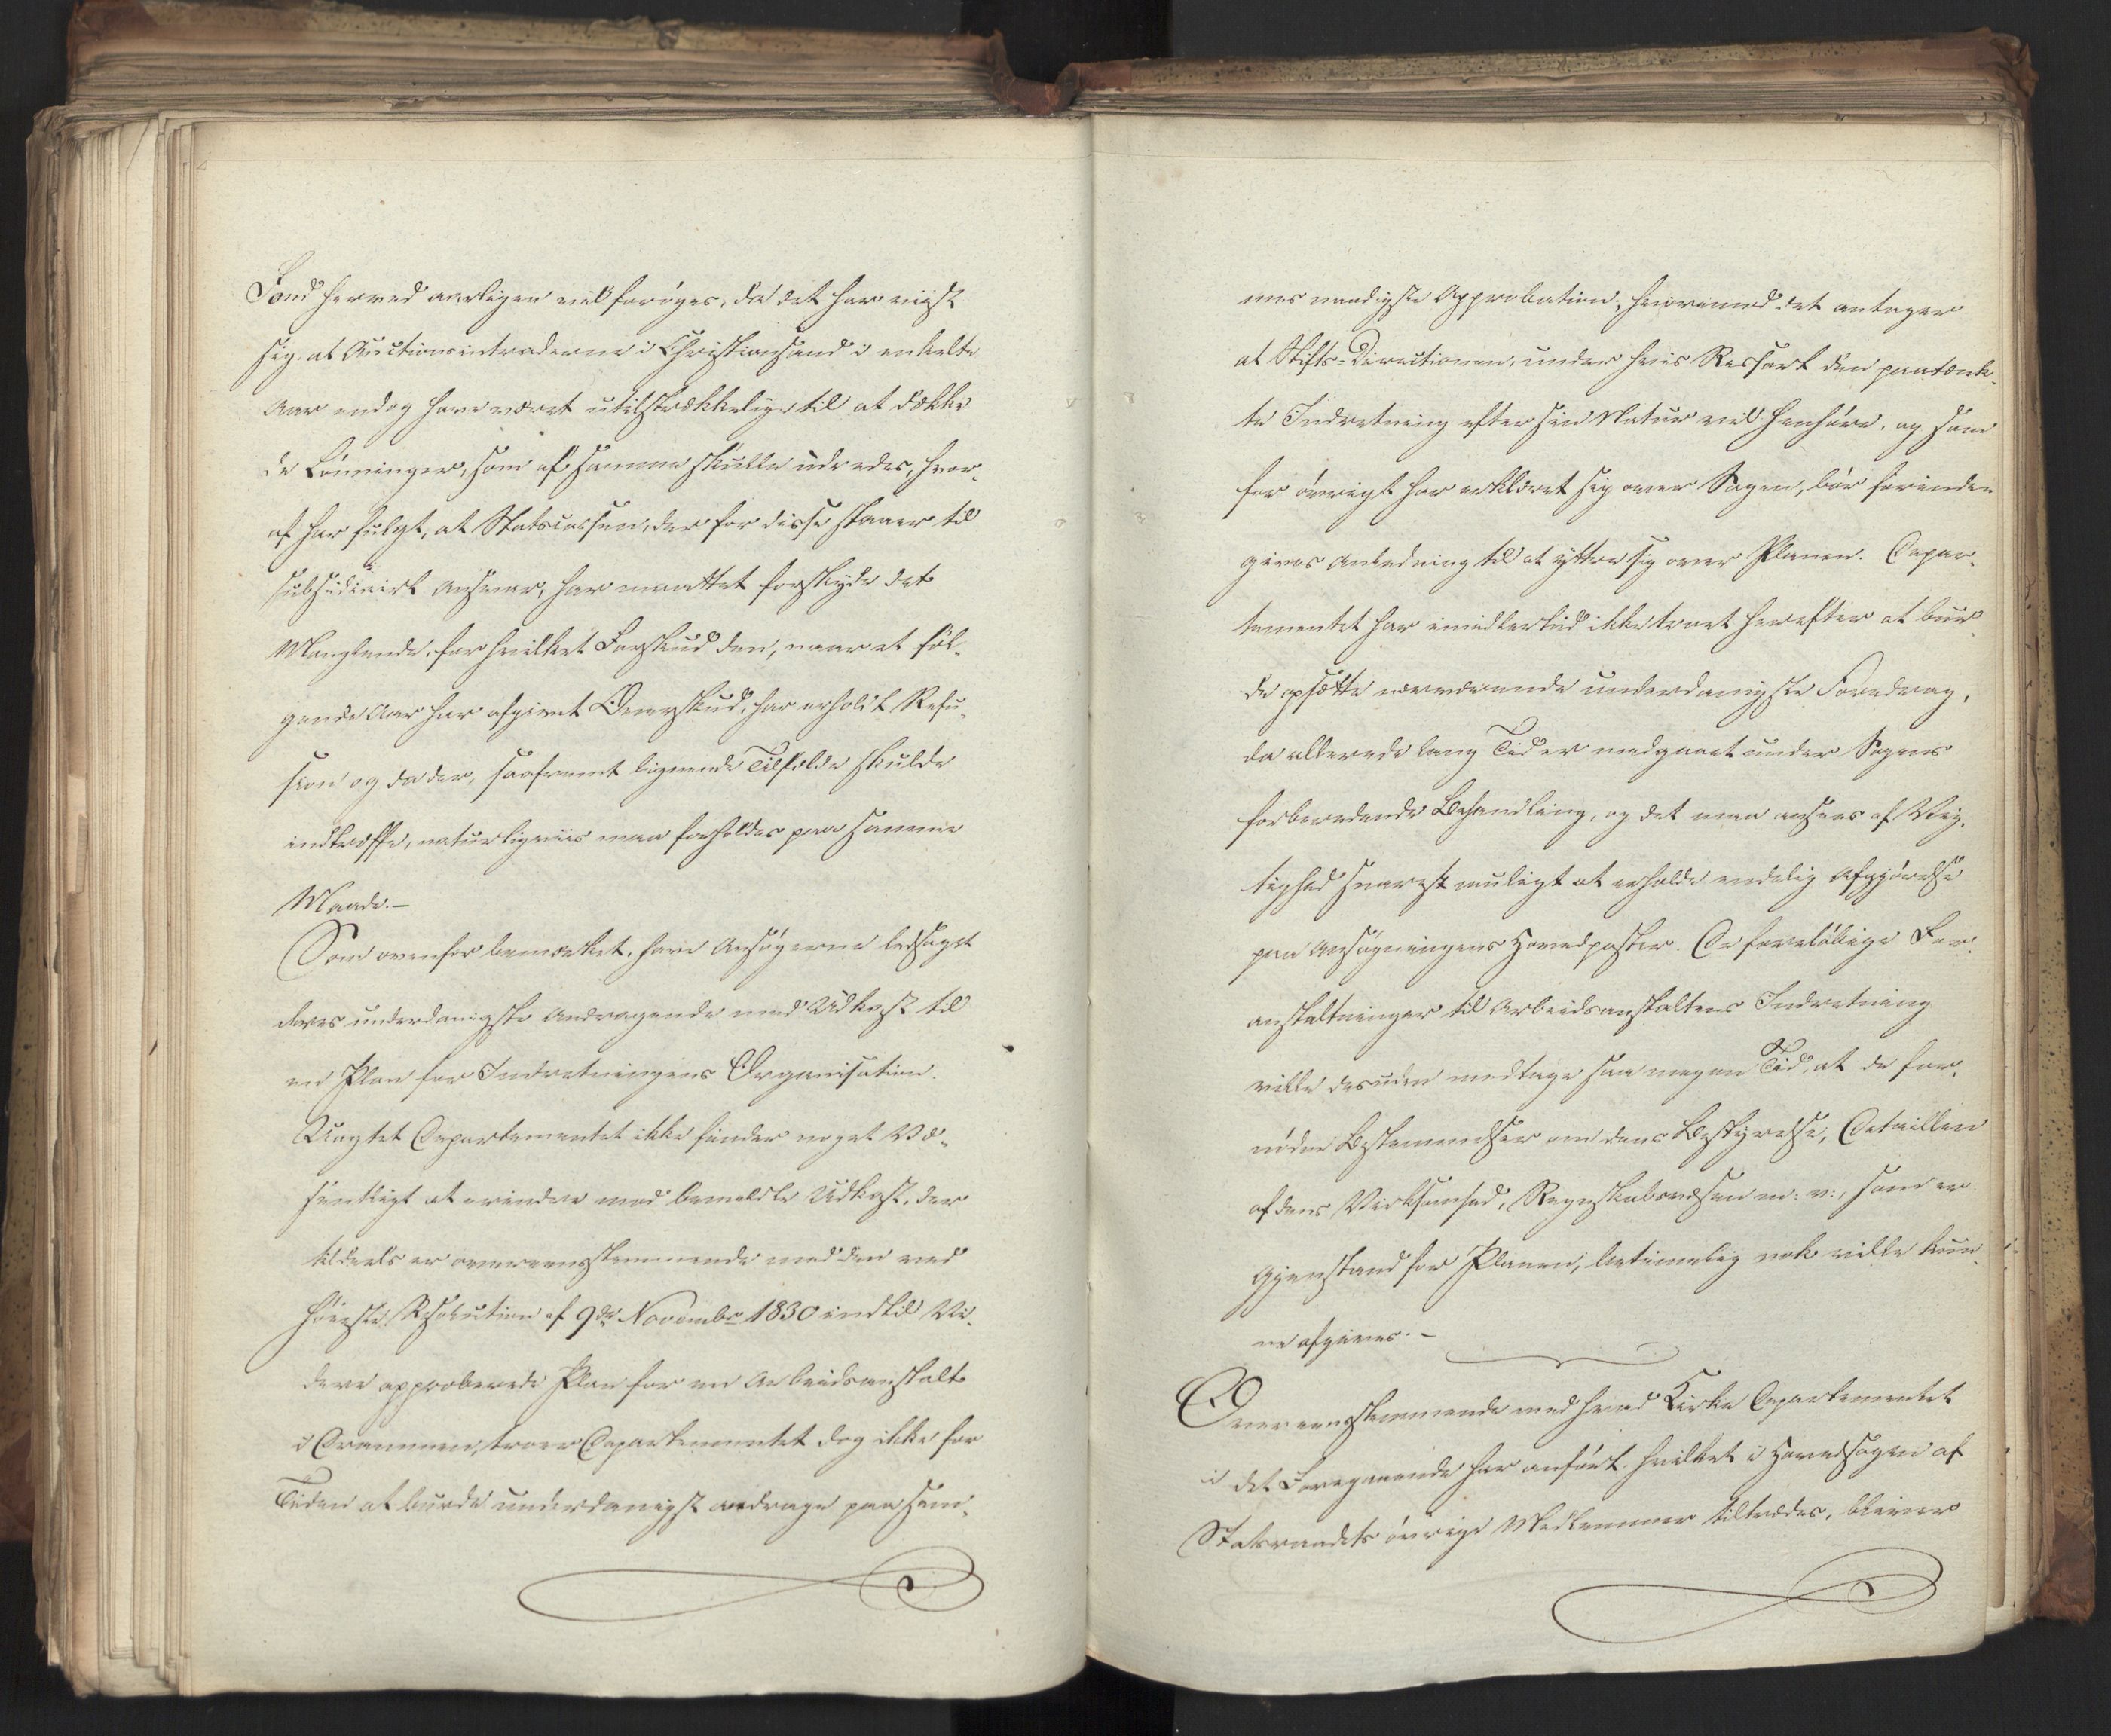 Fond herved aarligen vil forøges, da det har viist
sig at Auctionsintraderne i Christiansand i enkelte
Aar endog have været utilstrækkelige til at dække
de Lønninger, som af samme skulle udredes, hvor-
af har fulgt, at Statscassen, der for disse staaer til
subsidiairt Ansvar, har maattet forskyde det
Manglende, for hvilket Forskud den, naar et føl-
gende Aar har afgivet Overskud, har erholdt Refu-
sion og da der, saafremt lignende Tilfælde skulde
indtræffe, naturligviis maa forholdes paa samme
Maade.—
Som ovenfor bemærket, have Ansøgerne ledsaget
deres underdanigste Andragende med Udkast til
en Plan for Indretningens Organisation.
Uagtet Departementet ikke finder noget Væ-
sentligt at erindre mod bemeldte Udkast, der
tildeels er overeensstemmende med den ved
høieste Resolution af 9de Novembr 1830 indtil Vi-
dere approberede Plan for en Arbeidsanstalt
i Drammen, troer Departementet dog ikke for
Tiden at burde underdanigst andrage paa sam-
mes naadigste Approbation, hvorimod det antager
at Stifts-Directionen, under hvis Ressort den paatænk-
te Indretning efter sin Natur vil henhøre, og som
for øvrigt har erklæret sig over Sagen, bør forinden
gives Anledning til at yttre sig over Planen. Depar-
tementet har imidlertid ikke troet herefter at bur-
de opsætte nærværende underdanigste Foredrag,
da allerede lang Tid er medgaaet under Sagens
forberedende Behandling, og det maa ansees af Vig-
tighed snarest muligt at erholde endelig Afgjørelse
paa Ansøgningens Hovedposter. De foreløbige For-
anstaltninger til Arbeidsanstaltens Indretning
ville desuden medtage saa megen Tid, at de for-
nødne Bestemmelser om dens Bestyrelse, Detaillen
af dens Virksomhed, Regnskabsvæsen m: v:, som er
Gjenstand for Planen, betimelig nok ville kun-
ne afgives.—
Overeensstemmende med hvad Kirke Departementet
i det Foregaaende har anført, hvilket i Hovedsagen af
Statsraadets øvrige Medlemmer tiltrædes, bliver